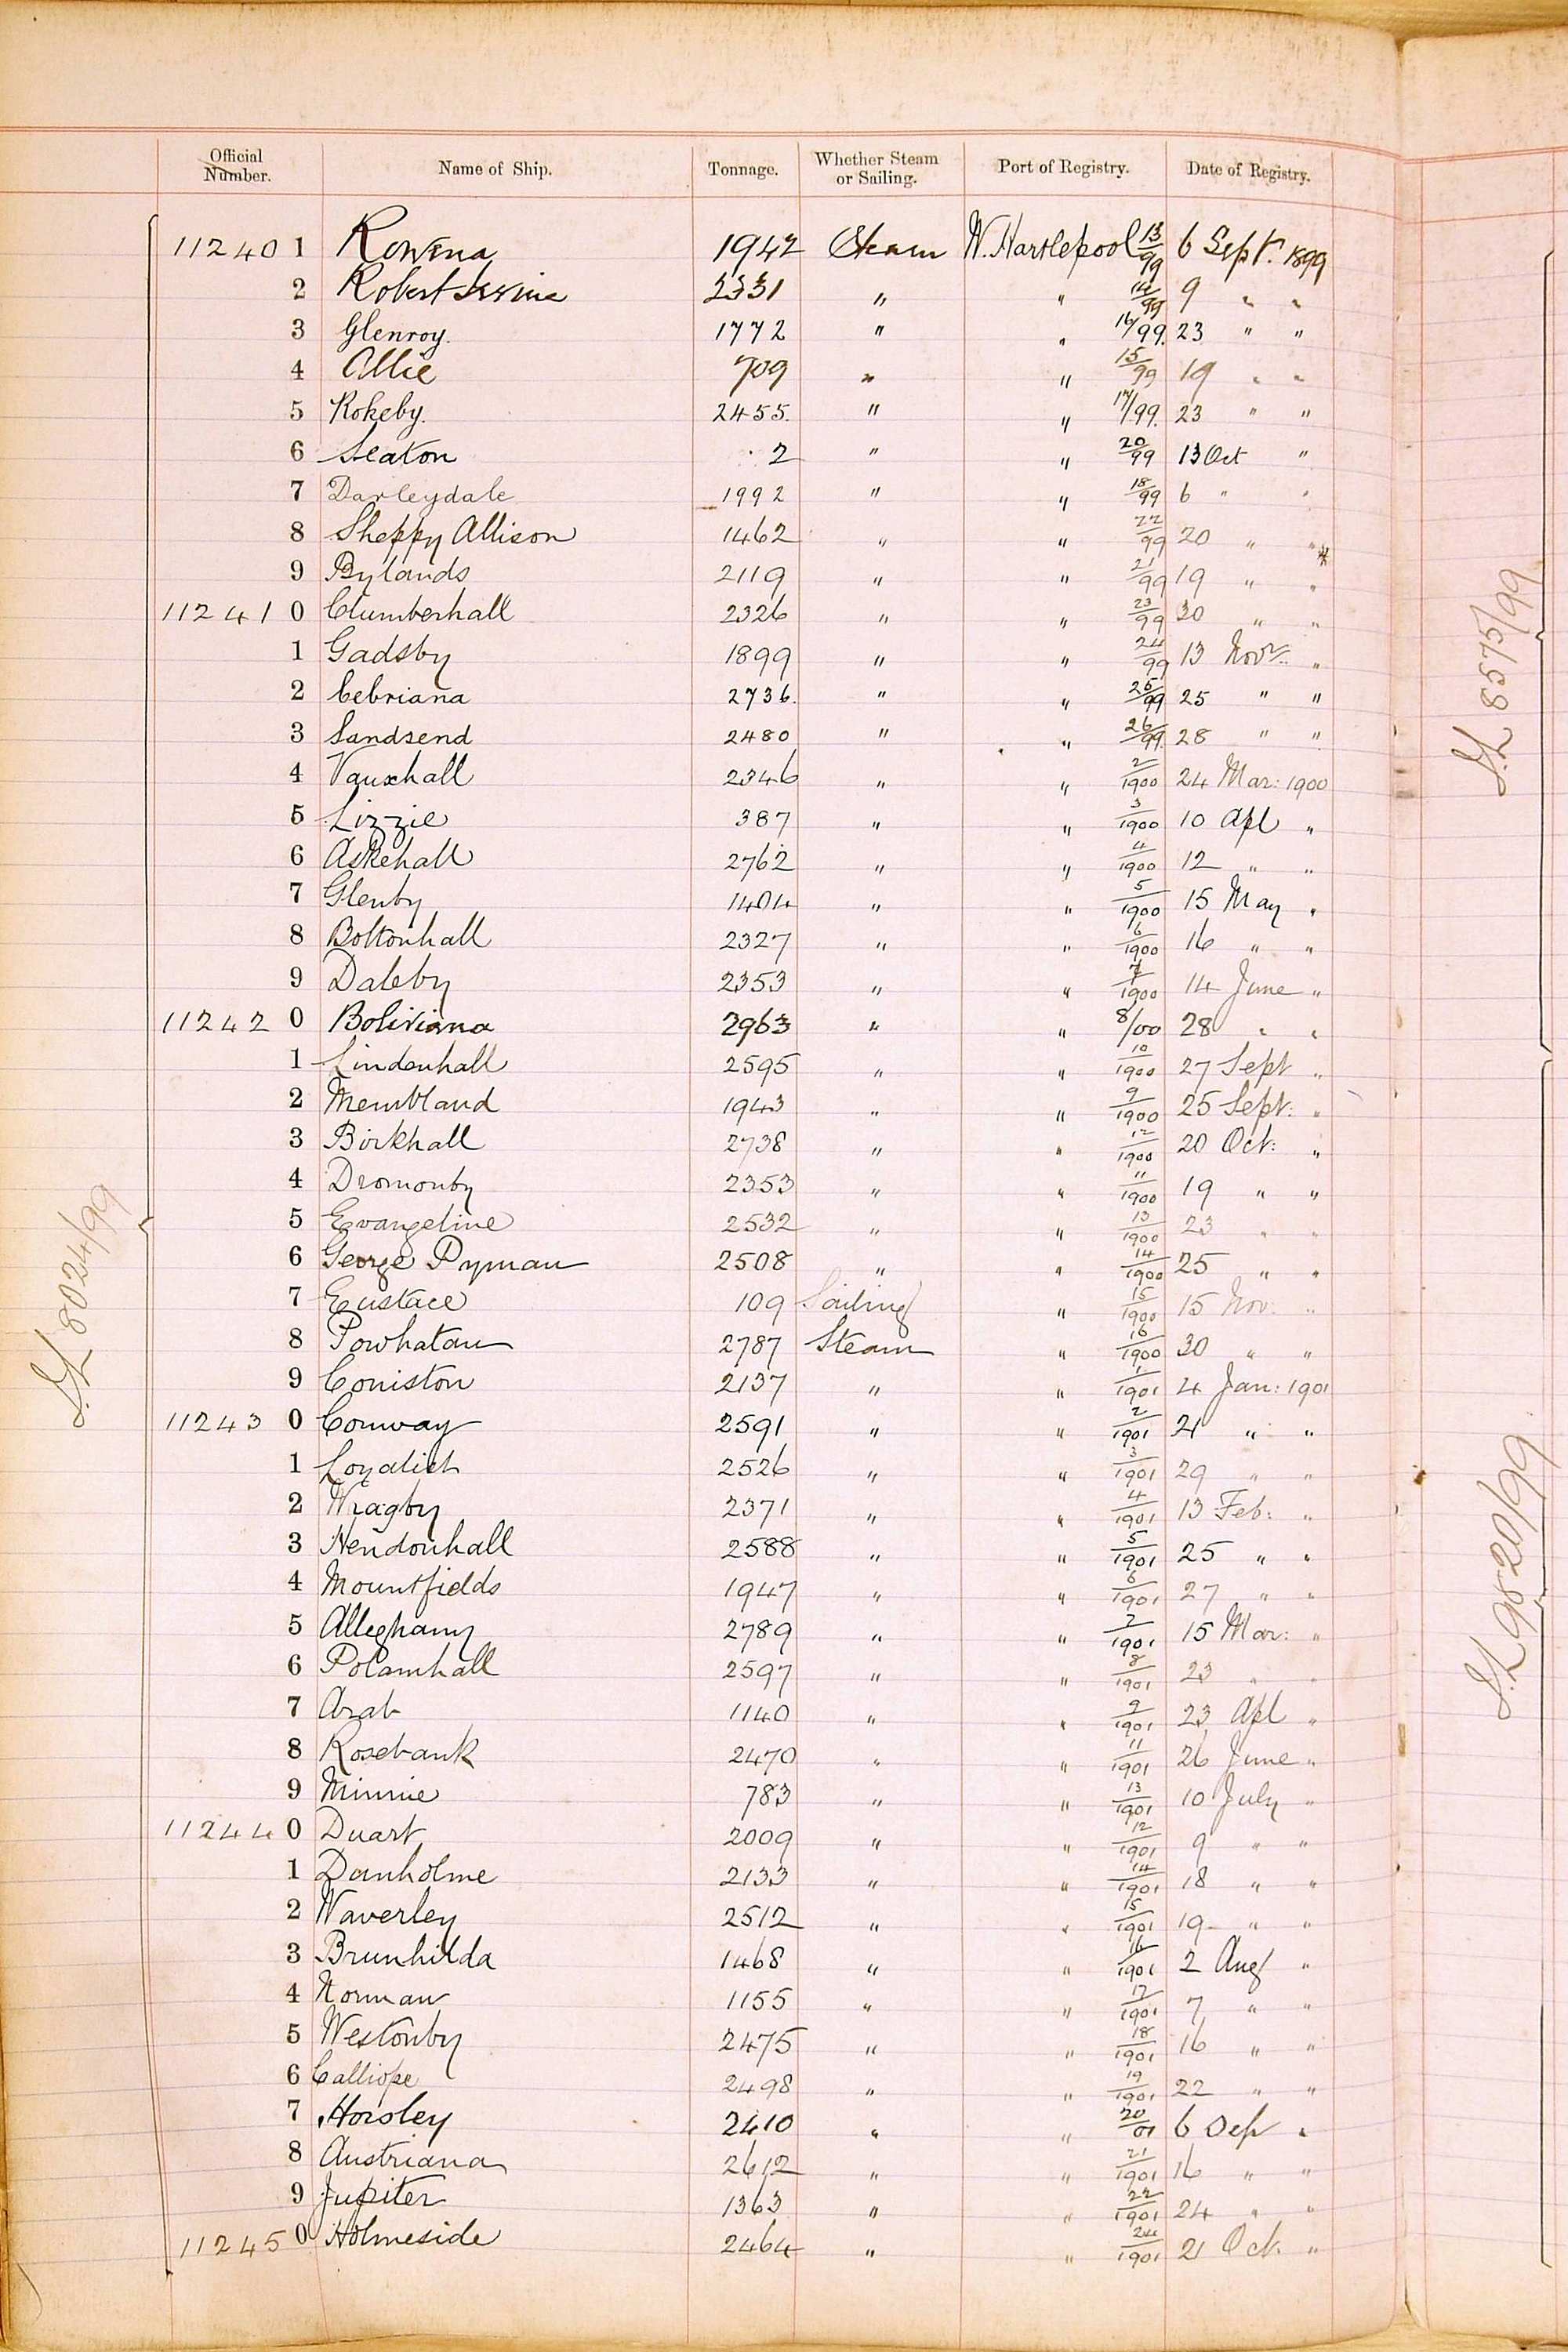 Official Number. Name of Ship. Tonnage. Whether Steam or Sailing. Port of Registry. Date of Registry.
11240 1 Rowena 1942 Steam W. Hartlepool 13/99 6 Sept. 1899
2 Robert Irvine 2331 " " 14/99 9 " "
3 Glenroy. 1772 " " 16/99. 23 " "
4 Allie 709 " " 15/99 19 " "
5 Rokeby. 2455. " " 17/99. 23 " "
6 Seaton 2 " " 20/99 13 Oct "
7 Darleydale 1992 " " 18/99 6 " "
8 Sheppy Allison 1462 " " 22/99 20 " "
9 Bylands 2119 " " 21/99 19 " " *
11241 0 Clumberhall 2326 " " 23/99 30 " "
1 Gadsby 1899 " " 24/99 13 Novr. "
2 Cebriana 2736. " " 25/99 25 " "
3 Sandsend 2480 " " 26/99. 28 " "
4 Vauxhall 2346 " " 2/1900 24 Mar: 1900
5 Lizzie 387 " " 3/1900 10 Apl "
6 Askehall 2762 " " 4/1900 12 " "
7 Glenby 1404 " " 5/1900 15 May "
8 Boltonhall 2327 " " 6/1900 16 " "
9 Daleby 2353 " " 7/1900 14 June "
11242 0 Boliviana 2963 " " 8/00 28 " "
1 Lindenhall 2595 " " 10/1900 27 Sept "
2 Membland 1943 " " 9/1900 25 Sept: "
3 Birkhall 2738 " " 12/1900 20 Oct: "
4 Dromonby 2353 " " 11/1900 19 " "
5 Evangeline 2532 " " 13/1900 23 " "
6 George Pyman 2508 " " 14/1900 25 " "
7 Eustace 109 Sailing " 15/1900 15 Nov: "
8 Powhatan 2787 Steam " 16/1900 30 " "
9 Coniston 2137 " " 1/1901 4 Jan: 1901
11243 0 Conway 2591 " " 2/1901 21 " "
1 Loyalist 2526 " " 3/1901 29 " "
2 Wragby 2371 " " 4/1901 13 Feb: "
3 Hendonhall 2588 " " 5/1901 25 " "
4 Mountfields 1947 " " 6/1901 27 " "
5 Alleghany 2789 " " 7/1901 15 Mar: "
6 Polamhall 2597 " " 8/1901 23 " "
7 Arab 1140 " " 9/1901 23 Apl "
8 Rosebank 2470 " " 11/1901 26 June "
9 Minnie 783 " " 13/1901 10 July "
11244 0 Duart 2009 " " 12/1901 9 " "
1 Danholme 2133 " " 14/1901 18 " "
2 Waverley 2512 " " 15/1901 19 " "
3 Brunhilda 1468 " " 16/1901 2 Aug "
4 Norman 1155 " " 17/1901 7 " "
5 Westonby 2475 " " 18/1901 16 " "
6 Calliope 2498 " " 19/1901 22 " "
7 Horsley 2410 " " 20/01 6 Sep "
8 Austriana 2612 " " 21/1901 16 " "
9 Jupiter 1363 " " 22/1901 24 " "
11245 0 Holmeside 2464 " " 24/1901 21 Oct. "
8024/99
8575/99
9820/99